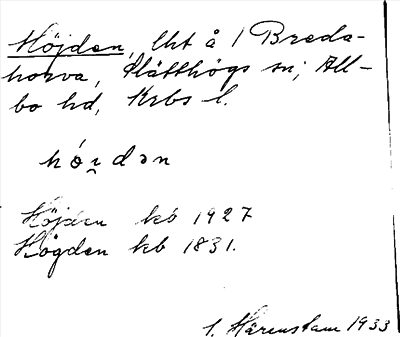 Höjden, lht å 1 Breda-
horva, Slätthögs sn; All-
bo hd, Krbs l.
hói̯dən
Höjden kb 1927
Högden kb 1831.
S. Härenstam 1933